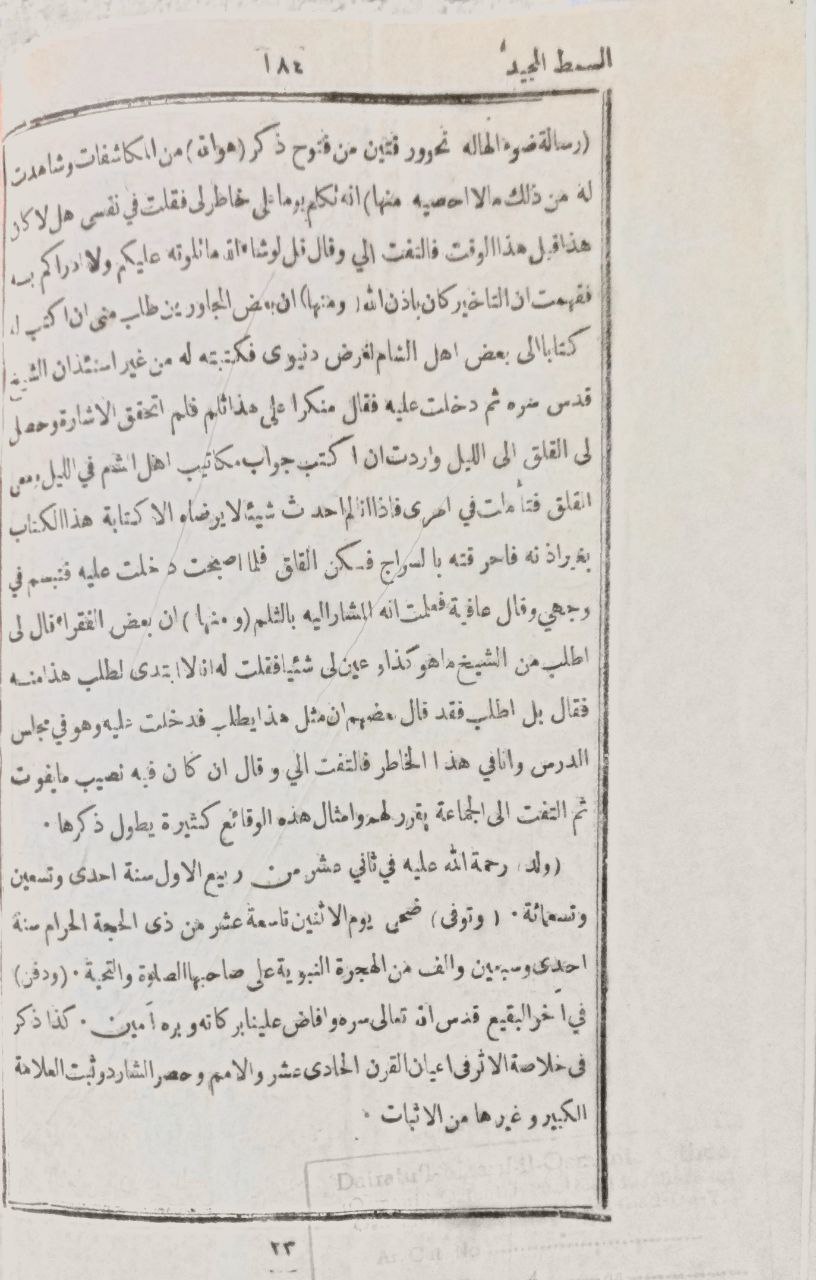 السمط المجيد
١٨٤
(رسالة ضوء الهاله نحو ورقتين من فتوح ذكر (هو الله) من المكاشفات وشاهدت
له من ذلك مالا احصيه منها) انه تكلم يوما على خاطر لى فقلت في نفسى هل لا كان
هذا قبل هذا الوقت فالتفت الي وقال قل لو شاء الله ما تلوته عليكم ولا ادراكم به
ففهمت ان التاخير كان باذن الله (ومنها) ان بعض المجاورين طلب منى ان اكتب له
كتابا الى بعض اهل الشام لغرض دنيوى فكتبته له من غير استئذان الشيخ
قدس سره ثم دخلت عليه فقال منكرا على هذا ثلم فلم اتحقق الاشارة وحصل
لى القلق الى الليل واردت ان اكتب جواب مكاتيب اهل الشام في الليل
القلق فتأملت في امرى فاذا انا لم احدث شيئا لا يرضاه الا كتابة هذا الكتاب
بغير اذنه فاحرقته بالسراج فسكن القلق فلما اصبحت دخلت عليه فتبسم في
وجهي وقال عافية فعلمت انه المشار اليه بالثلم (ومنها) ان بعض الفقراء قال لى
اطلب من الشيخ ما هو كذا وعين لى شئيا فقلت له انا لا ابتدى لطلب هذا منه
فقال بل اطلب فقد قال بعضهم ان مثل هذا يطلب فدخلت عليه وهو في مجلس
الدرس وانا في هذا الخاطر فالتفت الي وقال ان كان فيه نصيب ما يفوت
ثم التفت الى الجماعة يقرر لهم وامثال هذه الوقائع كثيرة يطول ذكرها ٠
(ولد) رحمة الله عليه في ثاني عشر من ربيع الاول سنة احدى وتسعين
وتسعمائة ٠ (وتوفى) ضحى يوم الاثنين تاسعة عشر من ذى الحجة الحرام سنة
احدى وسبعين والف من الهجرة النبوية على صاحبها الصلوة والتحية ٠ (ودفن)
في آخر البقيع قدس الله تعالى سره وافاض علينا بركاته وبره آمين ٠ كذا ذكر
فى خلاصة الاثر فى اعيان القرن الحادى عشر والامم وحصر الشارد وثبت العلامة
الكبير وغيرها من الاثبات ٠
٢٣